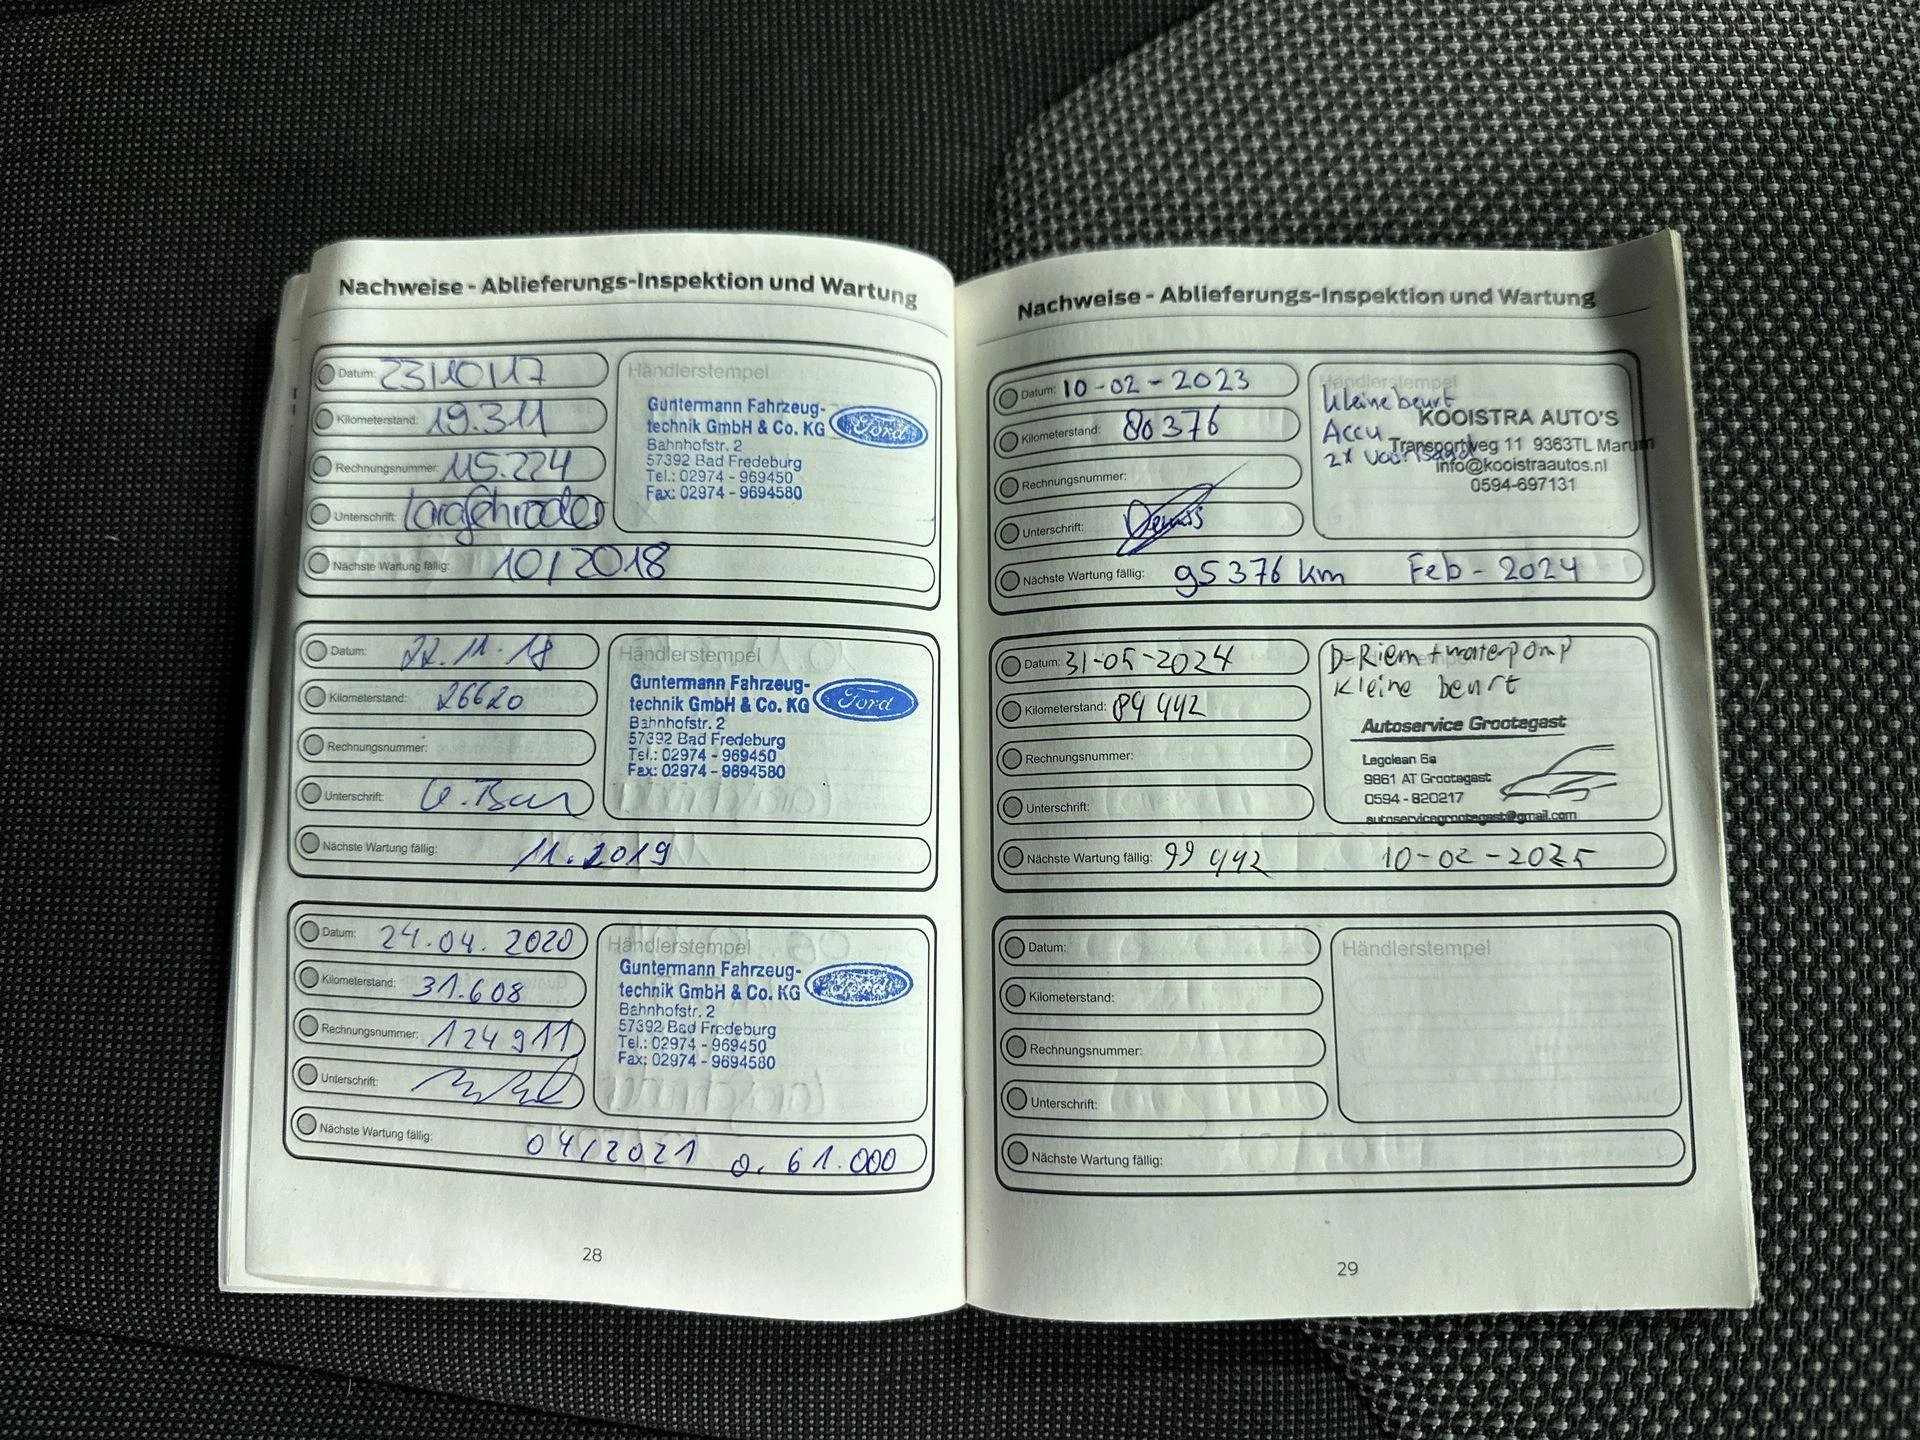 Nachweise - Ablieferungs-Inspektion und Wartung
Datum: 23/10/17
Kilometerstand: 19.311
Rechnungsnummer: 115.224
Unterschrift:
Nächste Wartung fällig: 10/2018
Händlerstempel
Guntermann Fahrzeug-
technik GmbH & Co. KG
Bahnhofstr. 2
57392 Bad Fredeburg
Tel.: 02974 - 969450
Fax: 02974 - 9694580
Ford
Datum: 22.11.18
Kilometerstand: 26620
Rechnungsnummer:
Unterschrift:
Nächste Wartung fällig: 11.2019
Händlerstempel
Guntermann Fahrzeug-
technik GmbH & Co. KG
Bahnhofstr. 2
57392 Bad Fredeburg
Tel.: 02974 - 969450
Fax: 02974 - 9694580
Ford
Datum: 24.04.2020
Kilometerstand: 31.608
Rechnungsnummer: 124911
Unterschrift:
Nächste Wartung fällig: 04/2021 o. 61.000
Händlerstempel
Guntermann Fahrzeug-
technik GmbH & Co. KG
Bahnhofstr. 2
57392 Bad Fredeburg
Tel.: 02974 - 969450
Fax: 02974 - 9694580
28
Nachweise - Ablieferungs-Inspektion und Wartung
Datum: 10-02-2023
Kilometerstand: 80376
Rechnungsnummer:
Unterschrift:
Nächste Wartung fällig: 95376 km Feb-2024
Händlerstempel
kleine beurt
Accu
2x
KOOISTRA AUTO'S
Transportweg 11 9363TL Marum
info@kooistraautos.nl
0594-697131
Datum: 31-05-2024
Kilometerstand: 84442
Rechnungsnummer:
Unterschrift:
Nächste Wartung fällig: 99442 10-02-2025
D-Riem + waterpomp
Kleine beurt
Autoservice Grootegast
Legolaan 6a
9861 AT Grootegast
0594 - 820217
autoservicegrootegast@gmail.com
Datum:
Kilometerstand:
Rechnungsnummer:
Unterschrift:
Nächste Wartung fällig:
Händlerstempel
29